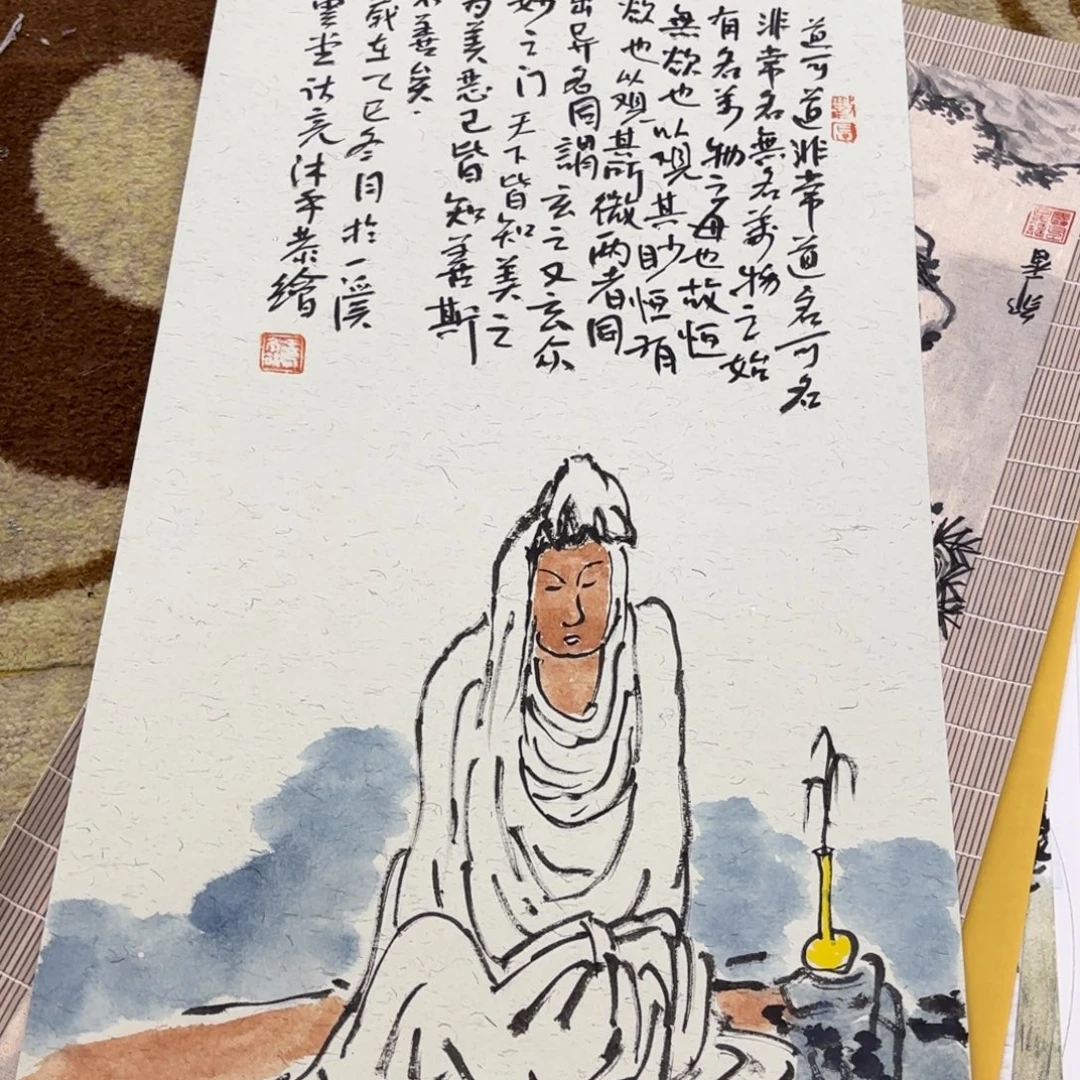 道可道非常道名可名
非常名無名萬物之始
有名萬物之母也故恒
無欲也以观其眇恒有
欲也以观其所徼两者同
出异名同謂玄之又玄众
妙之门天下皆知美之
为美恶已皆知善斯
不善矣
歲在乙巳冬月於一溪
雲堂
沐手恭繪